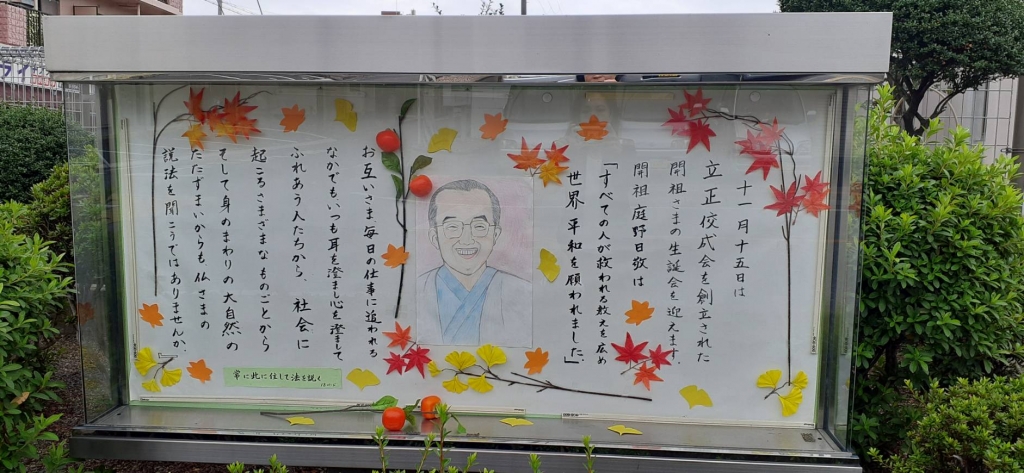 十一月十五日は
立正佼成会を創立された
開祖さまの生誕会を迎えます。
開祖庭野日敬は
「すべての人が救われる教えを広め
世界平和を願われました。」
お互いさま毎日の仕事に追われる
なかでも、いつも耳を澄まし心を澄まして、
ふれあう人たちから、社会に
起こるさまざまなものごとから
そして身のまわりの大自然の
たたずまいからも仏さまの
説法を聞こうではありませんか。
常に此に住して法を説く